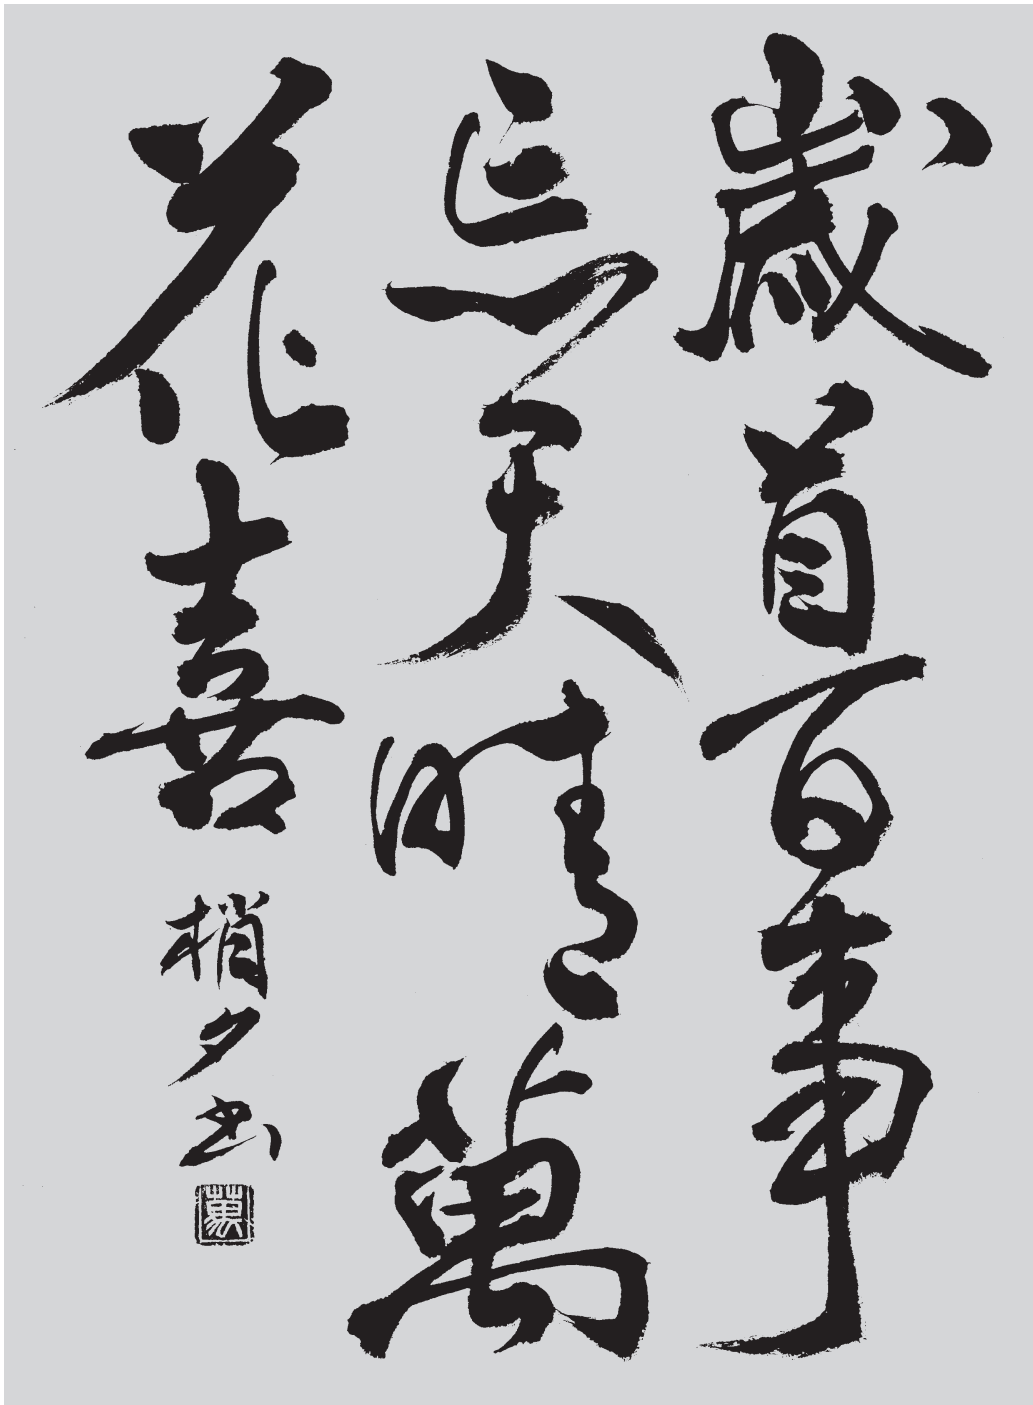 歳首百事
忘天晴萬
花喜
梢夕書